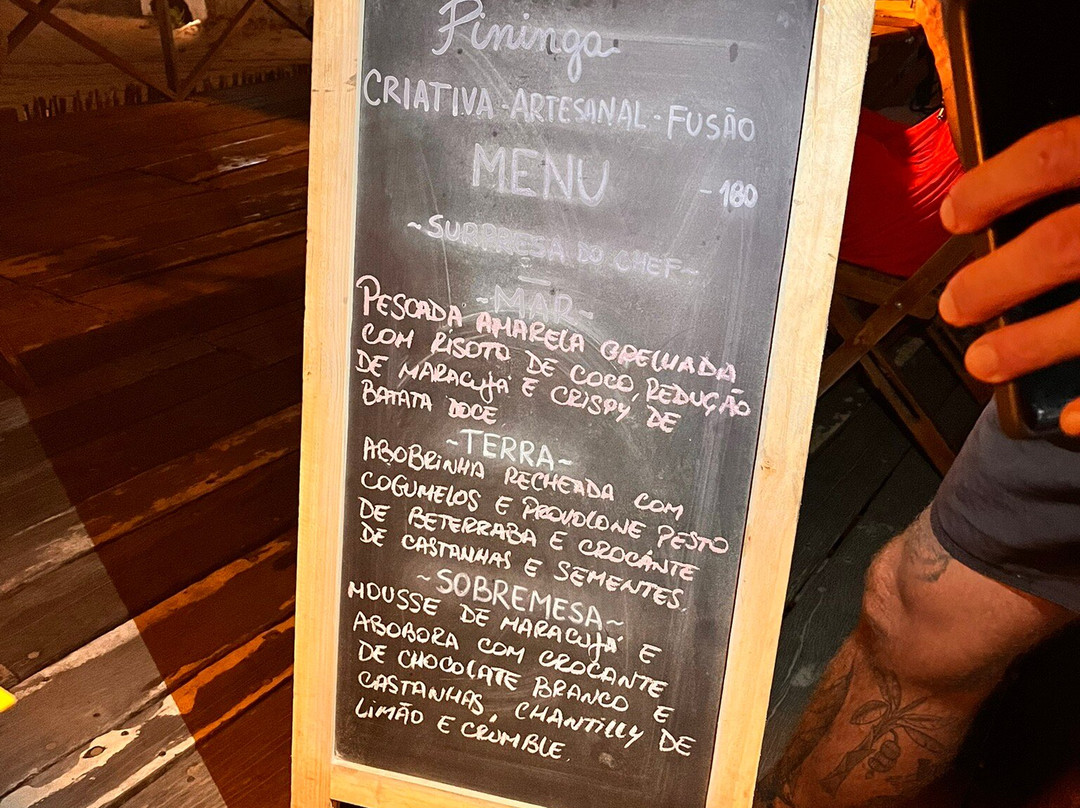 Pininga
CRIATIVA - ARTESANAL - FUSÃO
MENU - 180
~SURPRESA DO CHEF~
-MAR-
PESCADA AMARELA GRELHADA
COM RISOTO DE COCO, REDUÇÃO
DE MARACUJÁ E CRISPY DE
BATATA DOCE
~TERRA~
ABOBRINHA RECHEADA COM
COGUMELOS E PROVOLONE PESTO
DE BETERRABA E CROCANTE
DE CASTANHAS E SEMENTES.
~SOBREMESA~
MOUSSE DE MARACUJÁ E
ABOBORA COM CROCANTE
DE CHOCOLATE BRANCO E
CASTANHAS, CHANTILLY DE
LIMÃO E CRUMBLE.